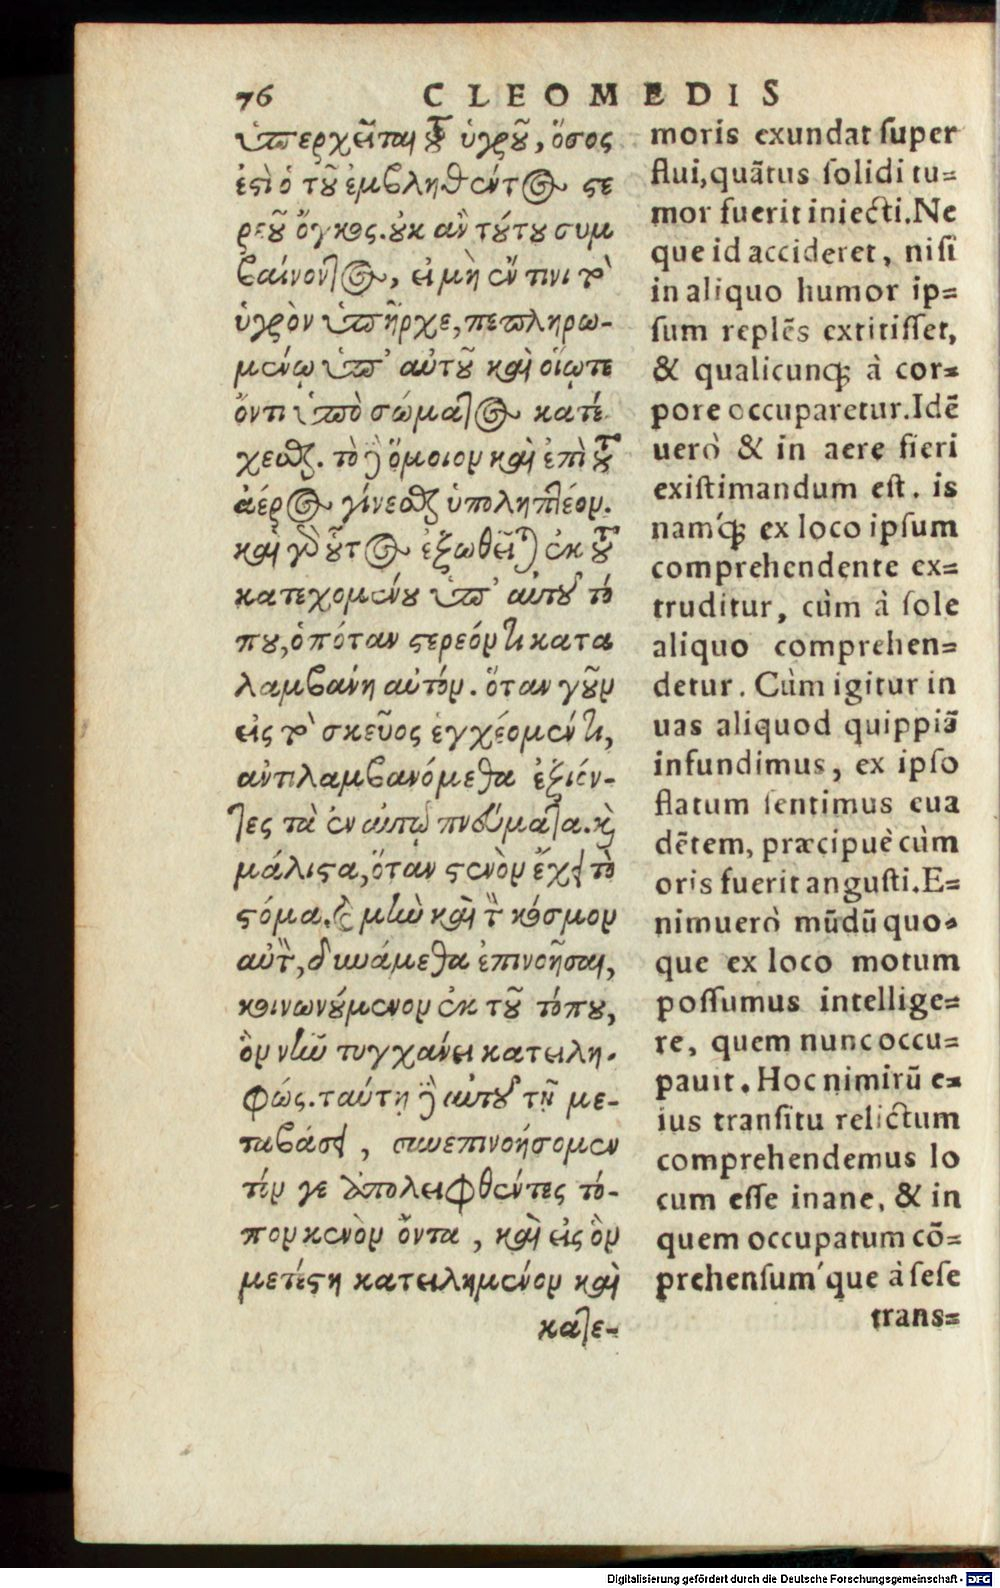 76 CLEOMEDIS
ὑπερχεῖται τοῦ ὑγροῦ, ὅσος
ἐστὶ ὁ τοῦ ἐμβληθέντος στε
ρεοῦ ὄγκος. οὐκ ἂν τούτου συμ
βαίνοντος, εἰ μὴ ἔν τινι τὸ
ὑγρὸν ὑπῆρχε, πεπληρω-
μένῳ ὑπ' αὐτοῦ καὶ οἵῳτε
ὄντι ὑπὸ σώματος κατέ
χεσθαι. τὸ δὲ ὅμοιον καὶ ἐπὶ τοῦ
ἀέρος γίνεσθαι ὑποληπτέον.
καὶ γὰρ οὗτος ἐξωθεῖται ἐκ τοῦ
κατεχομένου ὑπ' αὐτοῦ τό
που, ὁπόταν στερεόν τι κατα
λαμβάνῃ αὐτόν. ὅταν γοῦν
εἰς τὸ σκεῦος ἐγχέομέν τι,
ἀντιλαμβανόμεθα ἐξιέν-
τες τὰ ἐν αὐτῷ πνεύματα. καὶ
μάλιστα, ὅταν στενὸν ἔχῃ τὸ
στόμα. καὶ μὴν καὶ τὸν κόσμον
αὐτὸν, δυνάμεθα ἐπινοῆσαι,
κοινωνούμενον ἐκ τοῦ τόπου,
ὃν νῦν τυγχάνει κατειλη-
φώς. ταύτῃ δὲ αὐτοῦ τῇ με-
ταβάσει, συνεπινοήσομεν
τόν γε ἀπολειφθέντες τό-
πον κενὸν ὄντα, καὶ εἰς ὃν
μετέστη κατειλημένον καὶ
κατε-
moris exundat super
flui, quãtus solidi tu=
mor fuerit iniecti. Ne
que id accideret, nisi
in aliquo humor ip=
sum replẽs extitisset,
& qualicunq; à cor=
pore occuparetur. Idẽ
uerò & in aere fieri
existimandum est. is
namq́; ex loco ipsum
comprehendente ex=
truditur, cùm à sole
aliquo comprehen=
detur. Cùm igitur in
uas aliquod quippiã
infundimus, ex ipso
flatum sentimus eua
dẽtem, præcipuè cùm
oris fuerit angusti. E=
nimuerò mũdũ quo=
que ex loco motum
possumus intellige=
re, quem nunc occu=
pauit. Hoc nimirũ e=
ius transitu relictum
comprehendemus lo
cum esse inane, & in
quem occupatum cõ=
prehensum´que à sese
trans=
Digitalisierung gefördert durch die Deutsche Forschungsgemeinschaft - DFG